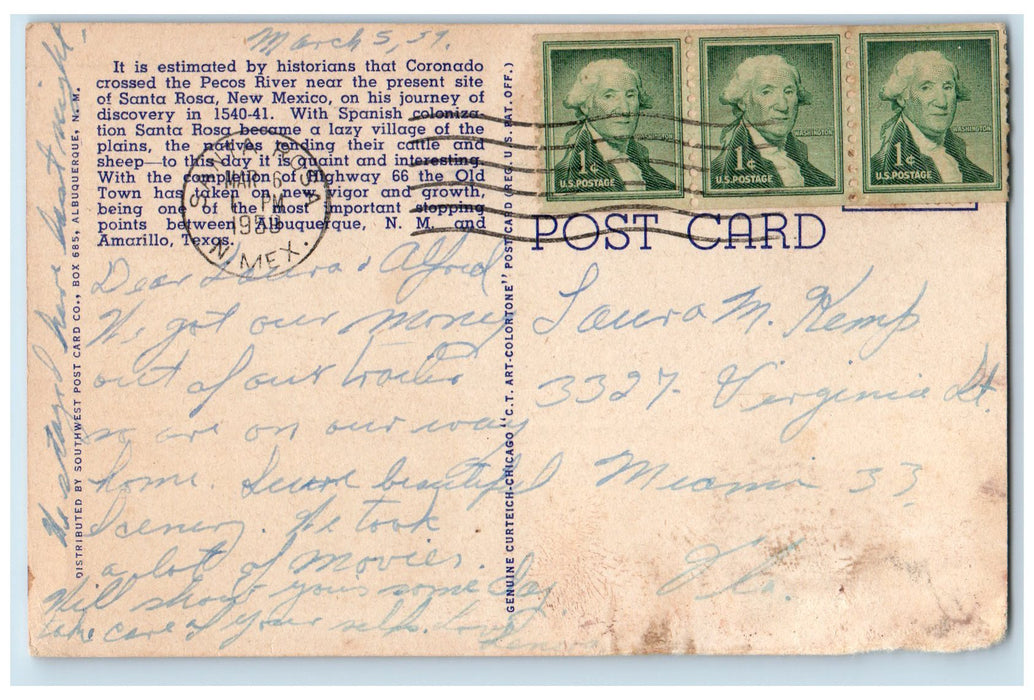 March 5, 59.
It is estimated by historians that Coronado
crossed the Pecos River near the present site
of Santa Rosa, New Mexico, on his journey of
discovery in 1540-41. With Spanish coloniza-
tion Santa Rosa became a lazy village of the
plains, the natives tending their cattle and
sheep—to this day it is quaint and interesting.
With the completion of Highway 66 the Old
Town has taken on new vigor and growth,
being one of the most important stopping
points between Albuquerque, N. M. and
Amarillo, Texas.
SANTA ROSA
MAR 6
PM
1959
N. MEX.
Dear Laura & Alfred
We got our money
out of our trailer
so are on our way
home. Sure beautiful
Scenery. We took
a lot of movies.
Will show you some day.
take care of your selfs. Love
We stayed here last night.
DISTRIBUTED BY SOUTHWEST POST CARD CO., BOX 685, ALBUQUERQUE, N. M.
GENUINE CURTEICH-CHICAGO "C.T. ART-COLORTONE" POST CARD (REG. U.S. PAT. OFF.)
WASHINGTON
1¢
U.S. POSTAGE
WASHINGTON
1¢
U.S. POSTAGE
WASHINGTON
1¢
U.S. POSTAGE
POST CARD
Laura M. Kemp
3327 Virginia St.
Miami 33
Fla.